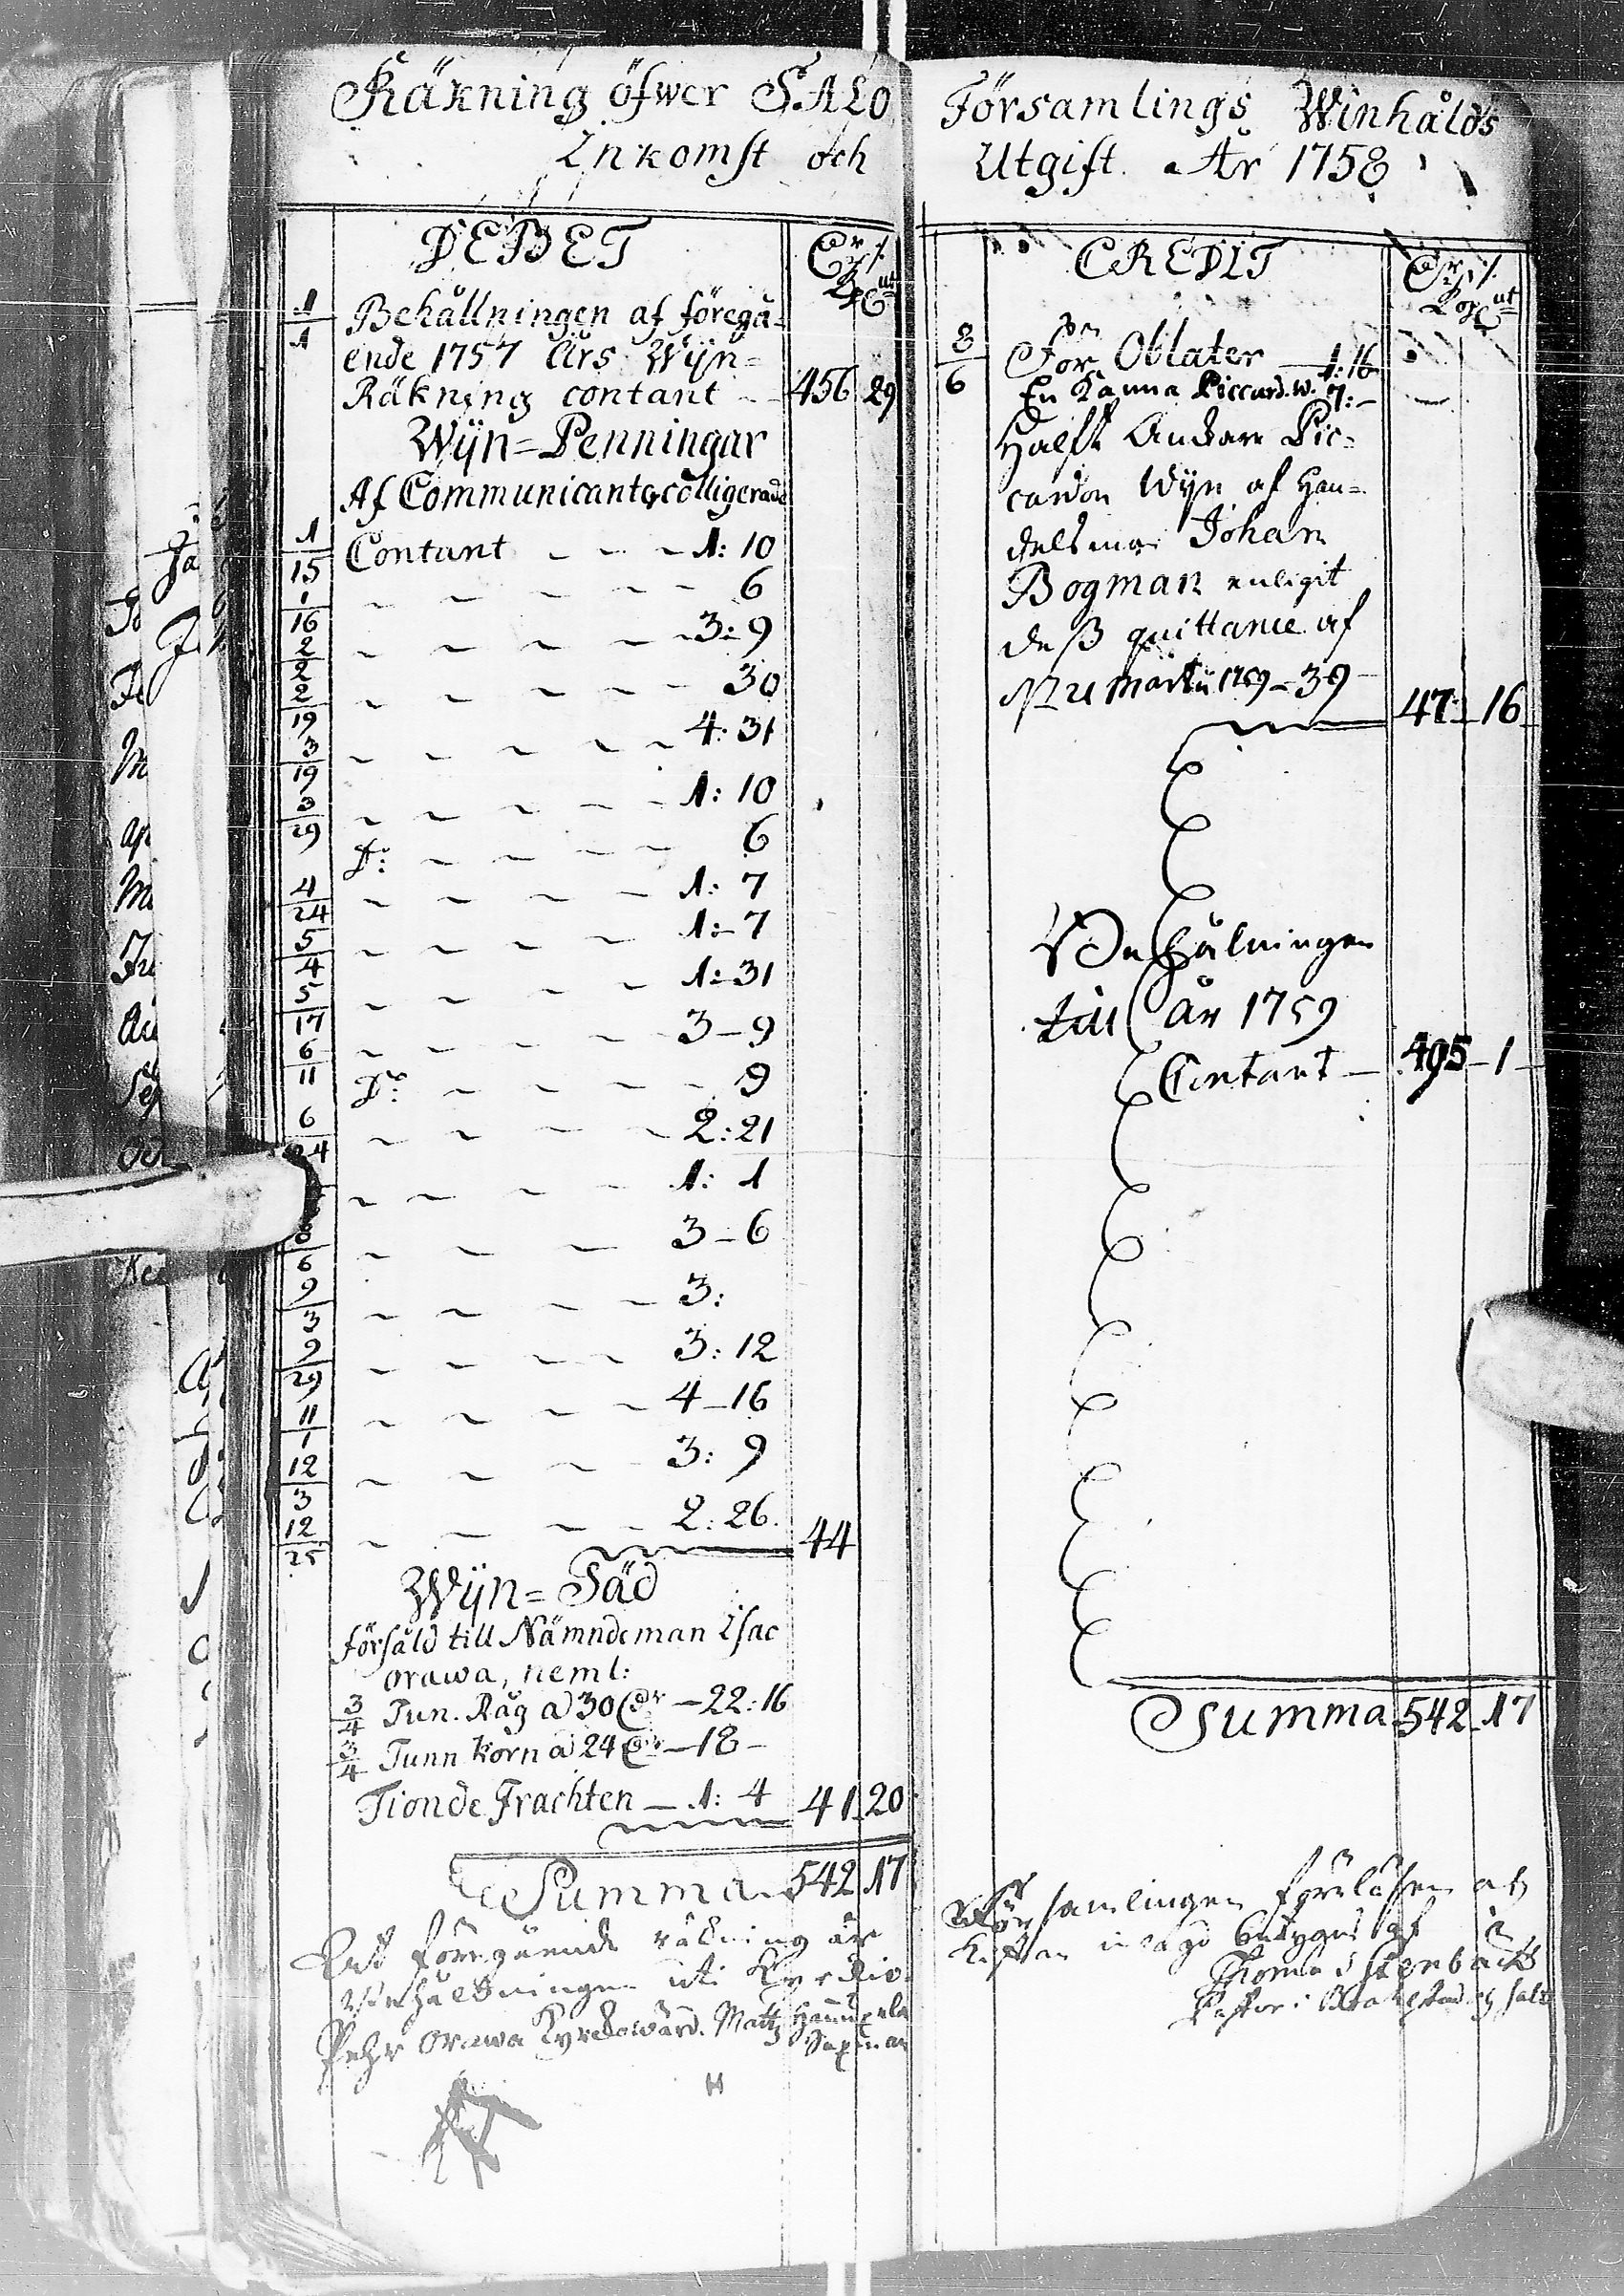 Räkning öfwer SALO
Inkomst och
DEBET
1/1 Behållningen af föregå-
ende 1757 Års Wijn=
Räkning contant 456 29
Wijn=Penningar
Af Communicanter colligerade
1/15 Contant 1: 10
1/16 6
2/2 3: 9
2/19 30
3/19 4: 31
3/29 1: 10
D:o 6
4/24 1: 7
5/4 1: 7
5/17 1: 31
6/11 3 - 9
D:o 9
6/24 2: 21
1: 1
8/6 3 - 6
9/3 3:
9/29 3: 12
11/1 4 - 16
12/3 3: 9
12/25 2: 26. 44
Wijn=Säd
försåld till Nämndeman Isac
orawa, neml:
3/4 Tun. Råg a) 30 Dr - 22: 16
3/4 Tunn Korn a) 24 Dr - 18 -
Tionde Frachten - 1: 4 41 20
Summa 542 17
föregående räkning är
Behåldningen uti Kyrckio
Pehr Orawa Kyrckowärd. Matts
H
Församlings Winhålds
Utgift. År 1758
CREDIT
8/6 För Oblater 1: 16
En Kanna Piccard. W. 7: -
Halft Anckare Pic-
cardon Wijn af Han-
delsman Johan
Bogman enligit
deß quittance af
Martii 1759 - 39 - 47 - 16
Behålningen
till År 1759
Contant - 495 - 1
Summa 542 - 17
Församlingen
intagd betygas af
Thomas Stenbäck
Pastor i